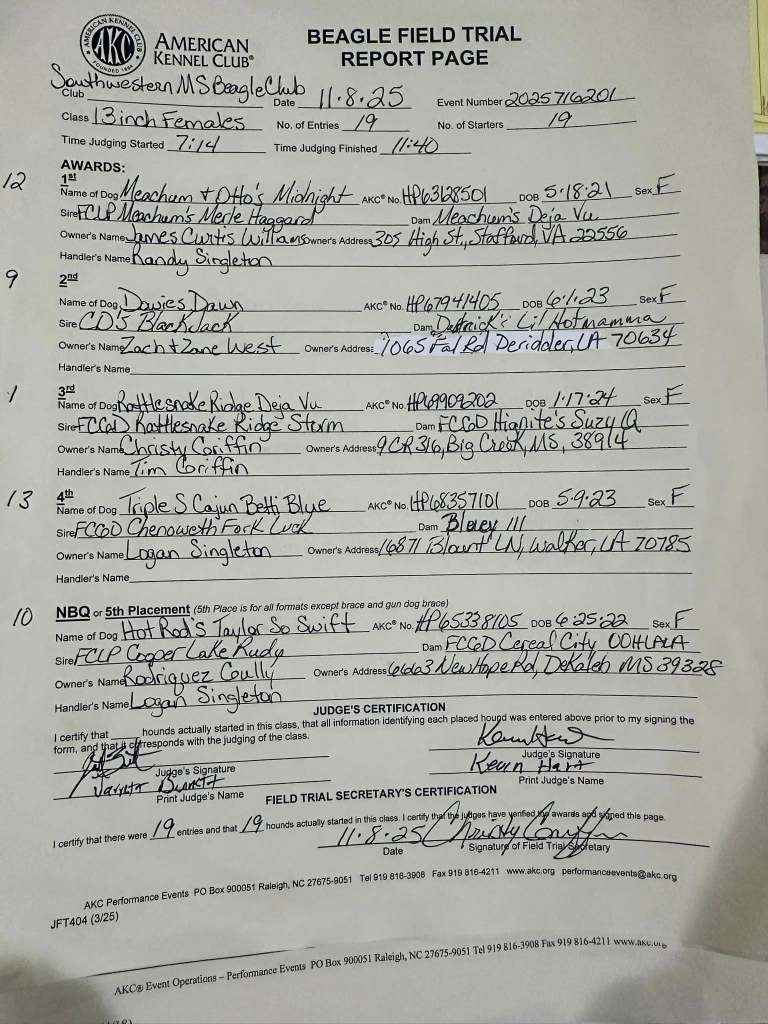 AMERICAN KENNEL CLUB
AKC
FOUNDED 1884
AMERICAN
KENNEL CLUB®
BEAGLE FIELD TRIAL
REPORT PAGE
Southwestern MS Beagle Club
Club Date 11.8.25 Event Number 2025716201
Class 13 inch Females No. of Entries 19 No. of Starters 19
Time Judging Started 7:14 Time Judging Finished 11:40
AWARDS:
12 1st
Name of Dog Meachum & Otto's Midnight AKC® No. HP63128501 DOB 5.18.21 Sex F
Sire FCLP Meachum's Merle Haggard Dam Meachum's Deja Vu
Owner's Name James Curtis Williams Owner's Address 305 High St., Stafford, VA 22556
Handler's Name Randy Singleton
9 2nd
Name of Dog Dowies Dawn AKC® No. HP67941405 DOB 6.1.23 Sex F
Sire CD'S BlackJack Dam Lil Hotmamma
Owner's Name Zach & Zane West Owner's Address 1065 Fal Rd Deridder, LA 70634
Handler's Name
1 3rd
Name of Dog Rattlesnake Ridge Deja Vu AKC® No. HP69909202 DOB 1.17.24 Sex F
Sire FCGD Rattlesnake Ridge Storm Dam FCGD Hignite's Suzy Q
Owner's Name Christy Griffin Owner's Address 9 CR 316, Big Creek, MS, 38914
Handler's Name Tim Griffin
13 4th
Name of Dog Triple S Cajun Betti Blue AKC® No. HP68357101 DOB 5.9.23 Sex F
Sire FCGD Chenoweth Fork Luck Dam III
Owner's Name Logan Singleton Owner's Address 16871 Blount LN, Walker, LA 70785
Handler's Name
10 NBQ or 5th Placement (5th Place is for all formats except brace and gun dog brace)
Name of Dog Hot Rod's Taylor So Swift AKC® No. HP65338105 DOB 6.25.22 Sex F
Sire FCLP Cooper Lake Rudy Dam FCGD Cereal City OOHLALA
Owner's Name Rodriquez Gully Owner's Address 6663 New Hope Rd, DeKalb MS 39328
Handler's Name Logan Singleton
JUDGE'S CERTIFICATION
I certify that ____ hounds actually started in this class, that all information identifying each placed hound was entered above prior to my signing the
form, and that it corresponds with the judging of the class.
Judge's Signature Judge's Signature
Kevin Hart
Print Judge's Name Print Judge's Name
FIELD TRIAL SECRETARY'S CERTIFICATION
I certify that there were 19 entries and that 19 hounds actually started in this class. I certify that the judges have verified the awards and signed this page.
11.8.25 Christy Griffin
Date Signature of Field Trial Secretary
AKC Performance Events PO Box 900051 Raleigh, NC 27675-9051 Tel 919 816-3908 Fax 919 816-4211 www.akc.org performanceevents@akc.org
JFT404 (3/25)
AKC® Event Operations – Performance Events PO Box 900051 Raleigh, NC 27675-9051 Tel 919 816-3908 Fax 919 816-4211 www.akc.org